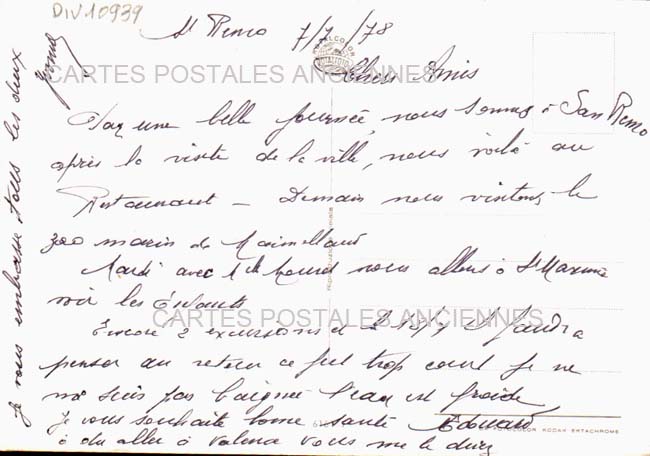 DIV10939
St Remo 7/7/78
Chers Amis
Par une belle journée, nous sommes à San Remo
après la visite de la ville, nous voilà au
Restaurant - Demain nous visitons le
zoo marin de Marineland
Mardi avec Mr nous allons à St Maxime
voir les Enfants
Encore 2 excursions et le 18/7 il faudra
penser au retour ce fut trop court je ne
me suis pas baigné l'eau est froide
je vous souhaite bonne santé Edouard
à du aller à Valence vous me le direz
Je vous embrasse tous les deux
Yvonne
CARTES POSTALES ANCIENNES
CARTES POSTALES ANCIENNES
KODAK EKTACHROME